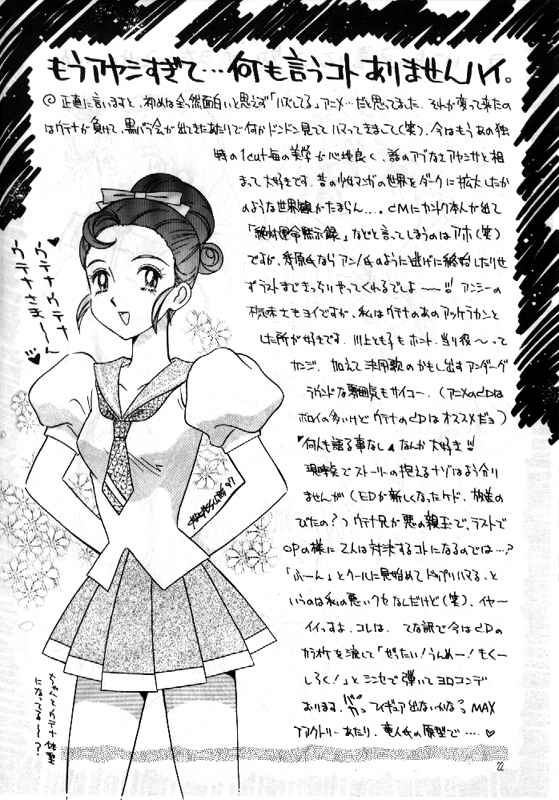 もうアヤシすぎて…何も言うコトありませんハイ。
◎正直に言いますと、初めは全然面白いと思えず「ハズしてる」アニメ…だと思ってました。それが変って来たの
はウテナが負けて、黒バラ会が出てきたあたりで何かドンドン見ててハマってきまして(笑)、今はもうあの独
特の1cut毎の美学が心地良く、話のアブなさアヤシサと相
まって大好きです。昔の少女マンガの世界をダークに拡大したか
のような世界観がたまらん…。CMにカントク本人が出て
「絶対運命黙示録」などと言ってしまうのはアホ(笑)
ですが、幾原氏ならアン/氏のように逃げに終始したりせ
ずラストまできっちりやってくれるでしょ〜!!! アンシーの
もヨイですが、私はウテナのあのアッケラカンと
した所が好きです。川上とも子もホント、当り役〜って
カンジ。加えて決闘歌のかもし出すアンダーグ
ラウンドな雰囲気もサイコー。(アニメのCDは
ボロイの多いけどウテナのCDはオススメだョ)
"何人も語る事なし"なんか大好き!!
現時点でストーリーの抱えるナゾはよう分り
ませんが(EDが新しくなったケド、放送の
びたの?)ウテナ兄が悪の親玉で、ラストで
OPの様に2人は対決するコトになるのでは…?
「ふーん」とクールに見始めてドップリハマる、と
いうのは私の悪いクセなんだけど(笑)、イヤー
イイっすよ、コレは。てな訳で今はCDの
カラオケを流して「ぜったい!うんめー!もくー
しろく!」とミンセで弾いてヨロコンデ
おります。フィギュア出ないかな? MAX
ファクトリーあたり、竜人氏の原型で……♡
ウテナウテナ
ウテナさま〜ん
'97
ちょっとウテナ体型
になってる〜?
22